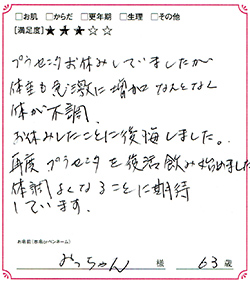 □お肌 □からだ □更年期 □生理 □その他
[満足度]★★★☆☆
プラセンタお休みしていましたが
体重も急激に増加なんとなく
体が不調。
お休みしたことに後悔しました。
再度プラセンタを復活飲み始めました
体調よくなることに期待
しています。
お名前(本名orペンネーム)
みっちゃん 様 63歳